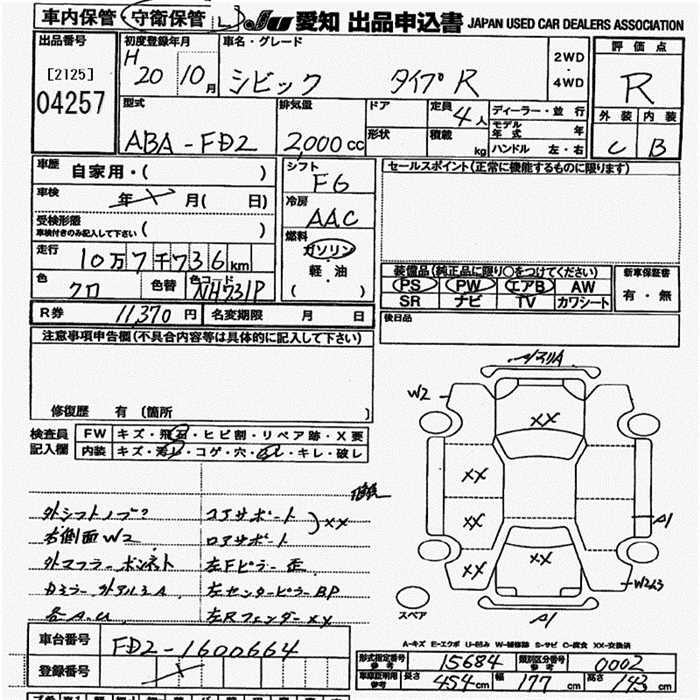 車内保管 守衛保管 L JU 愛知 出品申込書 JAPAN USED CAR DEALERS ASSOCIATION
出品番号 初度登録年月 車名・グレード 2WD・4WD 評価点
[2125] H 20 10月 シビック タイプR R
04257
型式 排気量 ドア 定員 4人 ディーラー・並行 外装 内装
ABA-FD2 2000cc 形状 積載 kg モデル年式 年 C B
ハンドル 左・右
車歴 自家用・( ) シフト F6 セールスポイント(正常に機能するものに限ります)
車検 年 月( 日) 冷房 AAC
受検形態 車検付きのみ記入して下さい ( ) 燃料 ガソリン
走行 10万7千736km 軽・油
色 クロ 色替 色コード NH731P ( )
装備品(純正品に限り○をつけてください) 新車保証書
PS PW エアB AW 有・無
SR ナビ TV カワシート
R券 11,370円 名変期限 月 日 後日品
注意事項申告欄(不具合内容等は具体的に記入して下さい)
修復歴 有(箇所 )
検査員記入欄 FW キズ・飛石・ヒビ割・リペア跡・X要
内装 キズ・汚レ・コゲ・穴・ ・キレ・破レ
W2
XX
XX
XX
XX
XX
A1
W2
A1
スペア
外シフトノブ? コアサポート XX
右側面W2 ロアサポート
外マフラー ボンネト 左Fピラー歪
左センターピラーBP
各A.U 左Rフェンダー XX
A-キズ E-エクボ U-凹み W-補修跡 S-サビ C-腐食 XX-交換済
車台番号 FD2-1600664
登録番号
形式指定番号参考 15684 類別区分番号参考 0002
車庫証明用参考 長さ 454cm 幅 177cm 高さ 143cm